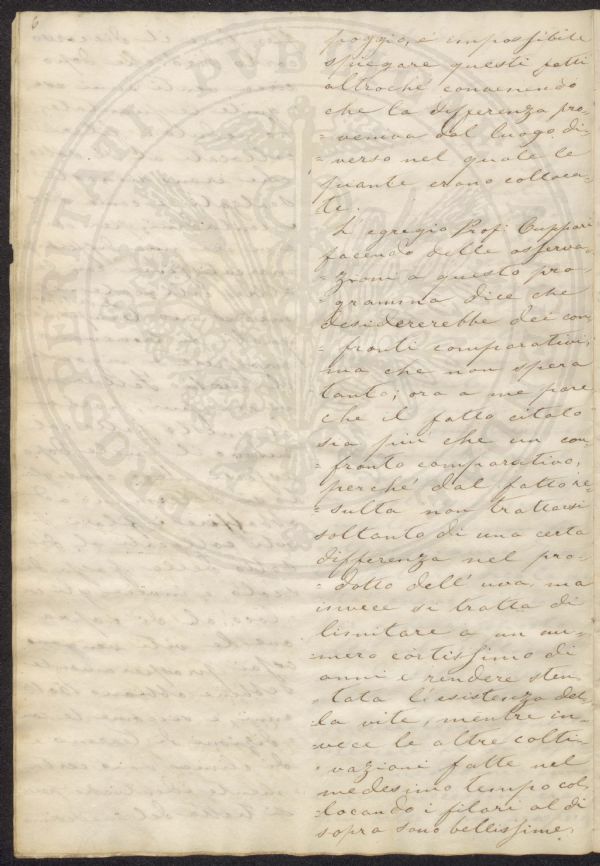 6
poggio, è impossibile
spiegare questi fatti
altrochè convenendo
che la differenza pro-
=veniva dal luogo di-
=verso nel quale le
piante erano colloca-
te.
L'egregio Prof: Cuppari
facendo delle osserva-
=zioni a questo pro-
=gramma dice che
desidererebbe dei con-
=fronti comparativi,
ma che non spera
tanto; ora a me pare
che il fatto citato
sia più che un con-
=fronto comparativo,
perchè dal fatto re-
=sulta non trattarsi
soltanto di una certa
differenza nel pro-
=dotto dell'uva, ma
invece si tratta di
limitare a un nu-
=mero cortissimo di
anni e rendere sten-
=tata l'esistenza del-
=la vite, mentre in-
=vece le altre colti-
=vazioni fatte nel
medesimo tempo col-
=locando i filari al di
sopra sono bellissime,
PVB
PROSPERITATI